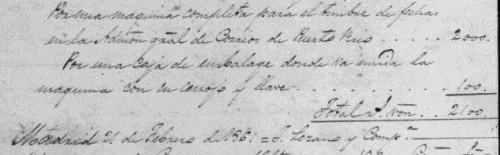 Por una maquina completa para el timbre de fechas
en la Admon gral de Correos de Puerto Rico ..... 2000.
Por una caja de embalage donde va unida la
maquina con su cerrojo y llave ........ 100.
Total R. von. 2100.
Madrid 21 de Febrero de 1861 = J. Lozano y Compª